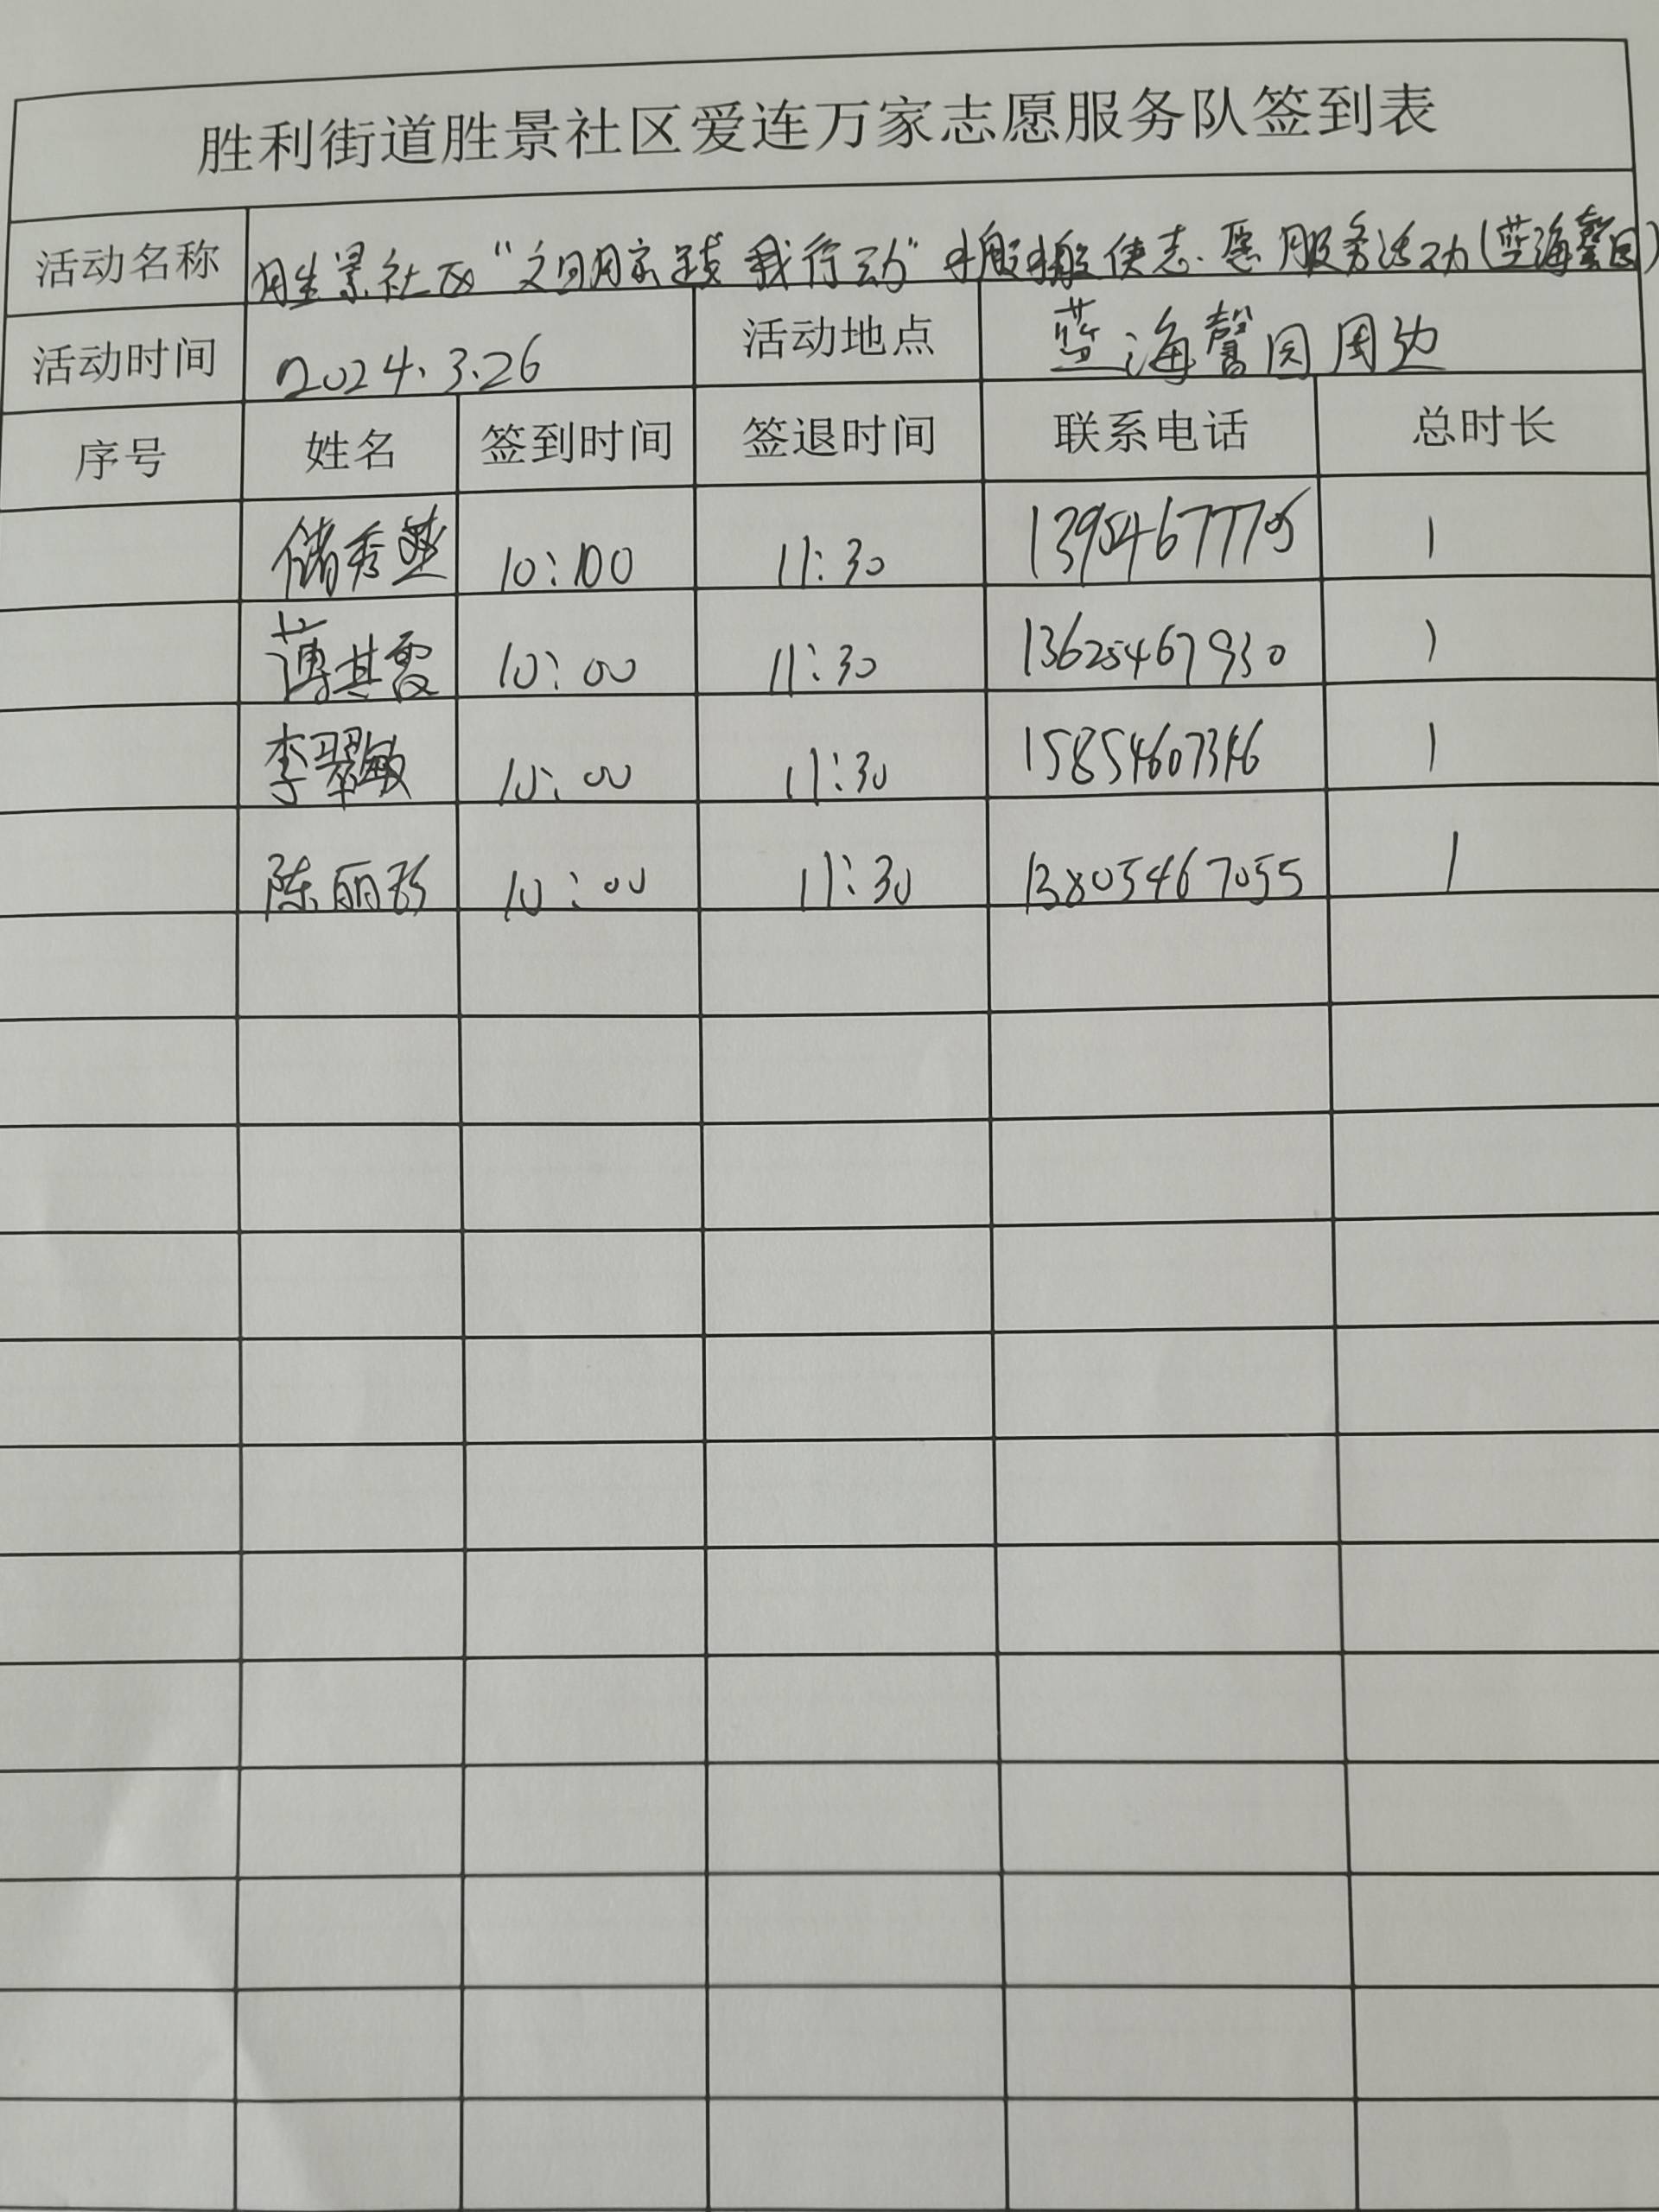 胜利街道胜景社区爱连万家志愿服务队签到表
活动名称 胜景社区“文明家践 我行动” 搬搬侠志愿服务活动(蓝海馨园)
活动时间 2024.3.26 活动地点 蓝海馨园周边
序号 姓名 签到时间 签退时间 联系电话 总时长
储秀燕 10:00 11:30 1
薄其霞 10:00 11:30 13625467930 1
李翠敏 10:00 11:30 15854607346 1
陈丽珍 10:00 11:30 13805467055 1